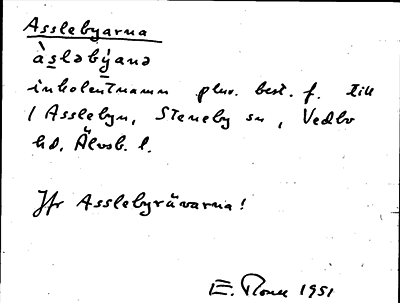 Asslebyarna
àsləbýanə
inbolentnamn plur. best. f. till
Asslebyn, Steneby sn, Vedbo
hd, Älvsb. l.
Jfr Asslebyrävarna!
E. 1951